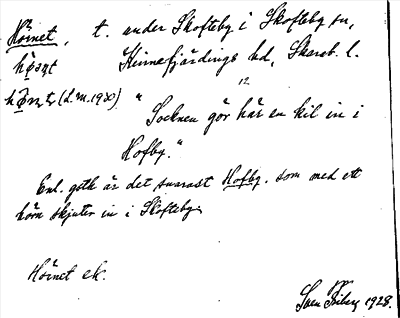 Hörnet, t. under Skofteby i Skofteby sn,
Kinnefjärdings hd, Skarab. l.
(L.M. 1930)
12
"Socknen gör här en kil in i
Hofby."
Enl. gtk är det snarast Hofby. som med ett
hörn skjuter in i Skofteby.
Hörnet ek.
Sven 1928.